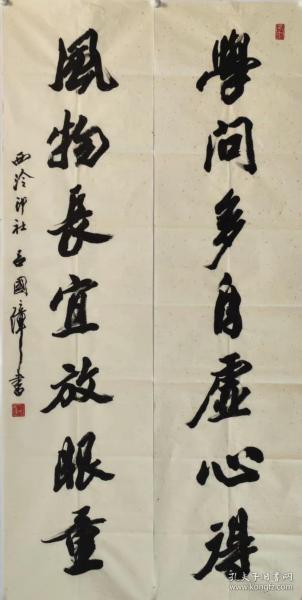 學問多自虛心得
風物長宜放眼量
西泠印社 吕國璋書
孔夫子旧书网